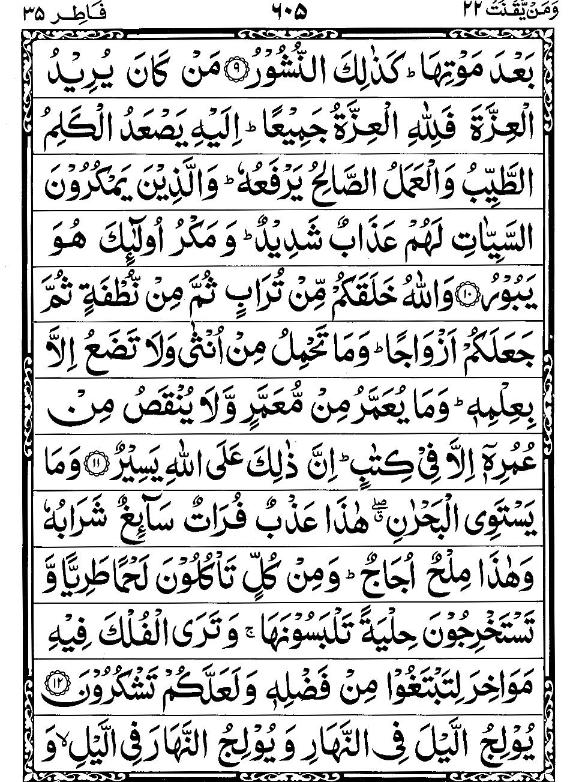 وَمَنْ يَّقْنُتْ ٢٢ ٦٠٥ فَاطِر ٣٥
بَعْدَ مَوْتِهَا ؕ كَذٰلِكَ النُّشُوْرُ ۹ مَنْ كَانَ يُرِيْدُ
الْعِزَّةَ فَلِلّٰهِ الْعِزَّةُ جَمِيْعًا ؕ اِلَيْهِ يَصْعَدُ الْكَلِمُ
الطَّيِّبُ وَالْعَمَلُ الصَّالِحُ يَرْفَعُهٗ ؕ وَالَّذِيْنَ يَمْكُرُوْنَ
السَّيِّاٰتِ لَهُمْ عَذَابٌ شَدِيْدٌ ؕ وَ مَكْرُ اُولٰٓئِكَ هُوَ
يَبُوْرُ ۱۰ وَاللّٰهُ خَلَقَكُمْ مِّنْ تُرَابٍ ثُمَّ مِنْ نُّطْفَةٍ ثُمَّ
جَعَلَكُمْ اَزْوَاجًا ؕ وَمَا تَحْمِلُ مِنْ اُنْثٰى وَلَا تَضَعُ اِلَّا
بِعِلْمِهٖ ؕ وَمَا يُعَمَّرُ مِنْ مُّعَمَّرٍ وَّلَا يُنْقَصُ مِنْ
عُمُرِهٖۤ اِلَّا فِيْ كِتٰبٍ ؕ اِنَّ ذٰلِكَ عَلَى اللّٰهِ يَسِيْرٌ ۱۱ وَمَا
يَسْتَوِى الْبَحْرٰنِ ۖ هٰذَا عَذْبٌ فُرَاتٌ سَآئِغٌ شَرَابُهٗ
وَهٰذَا مِلْحٌ اُجَاجٌ ؕ وَمِنْ كُلٍّ تَاْكُلُوْنَ لَحْمًا طَرِيًّا وَّ
تَسْتَخْرِجُوْنَ حِلْيَةً تَلْبَسُوْنَهَا ۚ وَتَرَى الْفُلْكَ فِيْهِ
مَوَاخِرَ لِتَبْتَغُوْا مِنْ فَضْلِهٖ وَلَعَلَّكُمْ تَشْكُرُوْنَ ۱۲
يُوْلِجُ الَّيْلَ فِى النَّهَارِ وَيُوْلِجُ النَّهَارَ فِى الَّيْلِ ۙ وَ